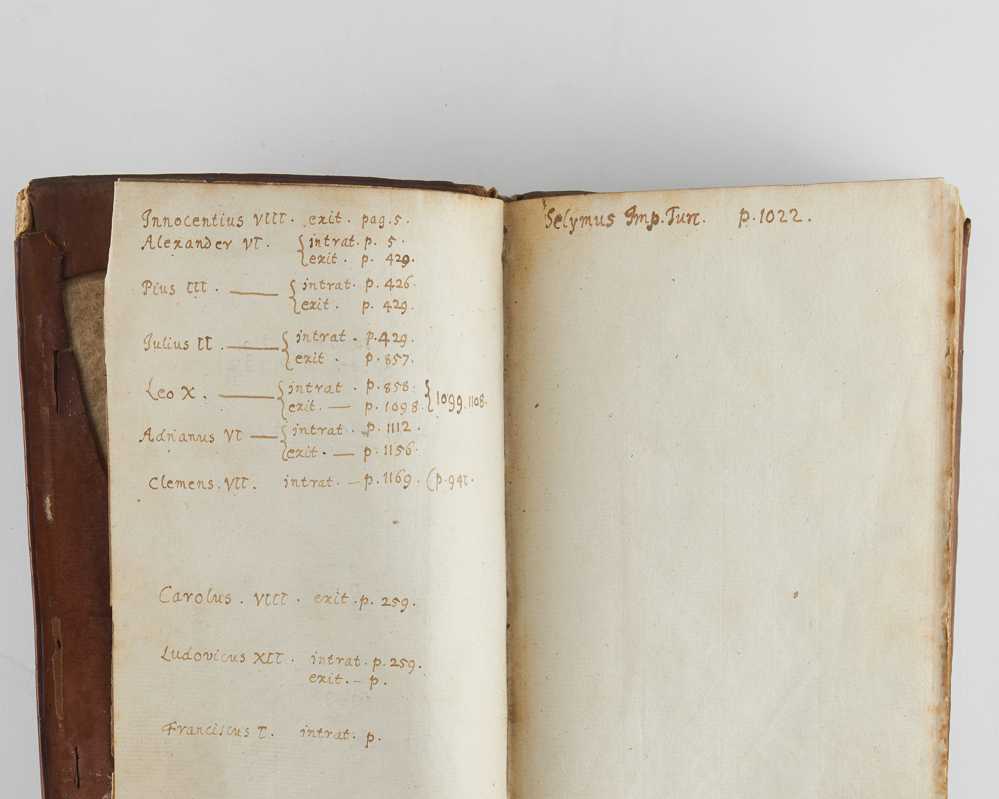 Innocentius VIII. exit. pag. 5.
Alexander VI. { intrat. p. 5.
{ exit. p. 429.
Pius III. — { intrat. p. 426.
{ exit. p. 429.
Julius II. — { intrat. p. 429.
{ exit. p. 857.
Leo X. — { intrat. p. 858.
{ exit. — p. 1098. { 1099. 1108.
Adrianus VI — { intrat. p. 1112.
{ exit. — p. 1156.
Clemens. VII. intrat. — p. 1169. (p. 941.
Carolus. VIII. exit. p. 259.
Ludovicus XII. intrat. p. 259.
exit. — p.
Franciscus I. intrat. p.
Selymus Imp. Turc. p. 1022.